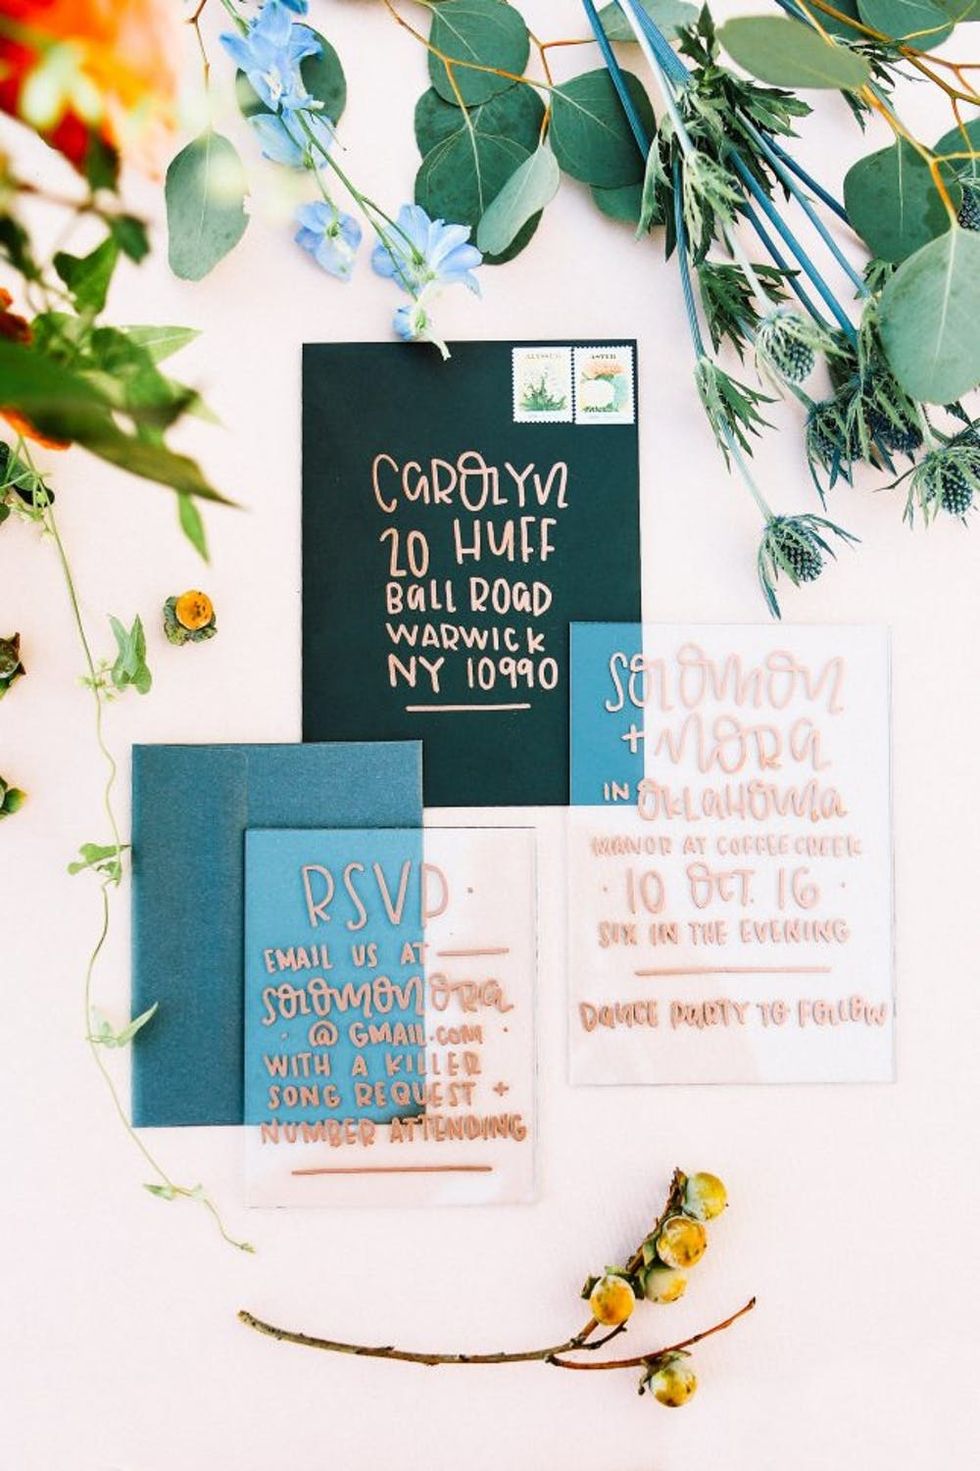 ALYSSUM ASTER
CAROLYN
20 HUFF
BALL ROAD
WARWICK
NY 10990
SOLOMON
+ NORA
IN OKLAHOMA
MANOR AT COFFEE CREEK
· 10 OCT. 16 ·
SIX IN THE EVENING
DANCE PARTY TO FOLLOW
RSVP ·
EMAIL US AT
SOLOMONORA
· @ GMAIL.COM ·
WITH A KILLER
SONG REQUEST +
NUMBER ATTENDING